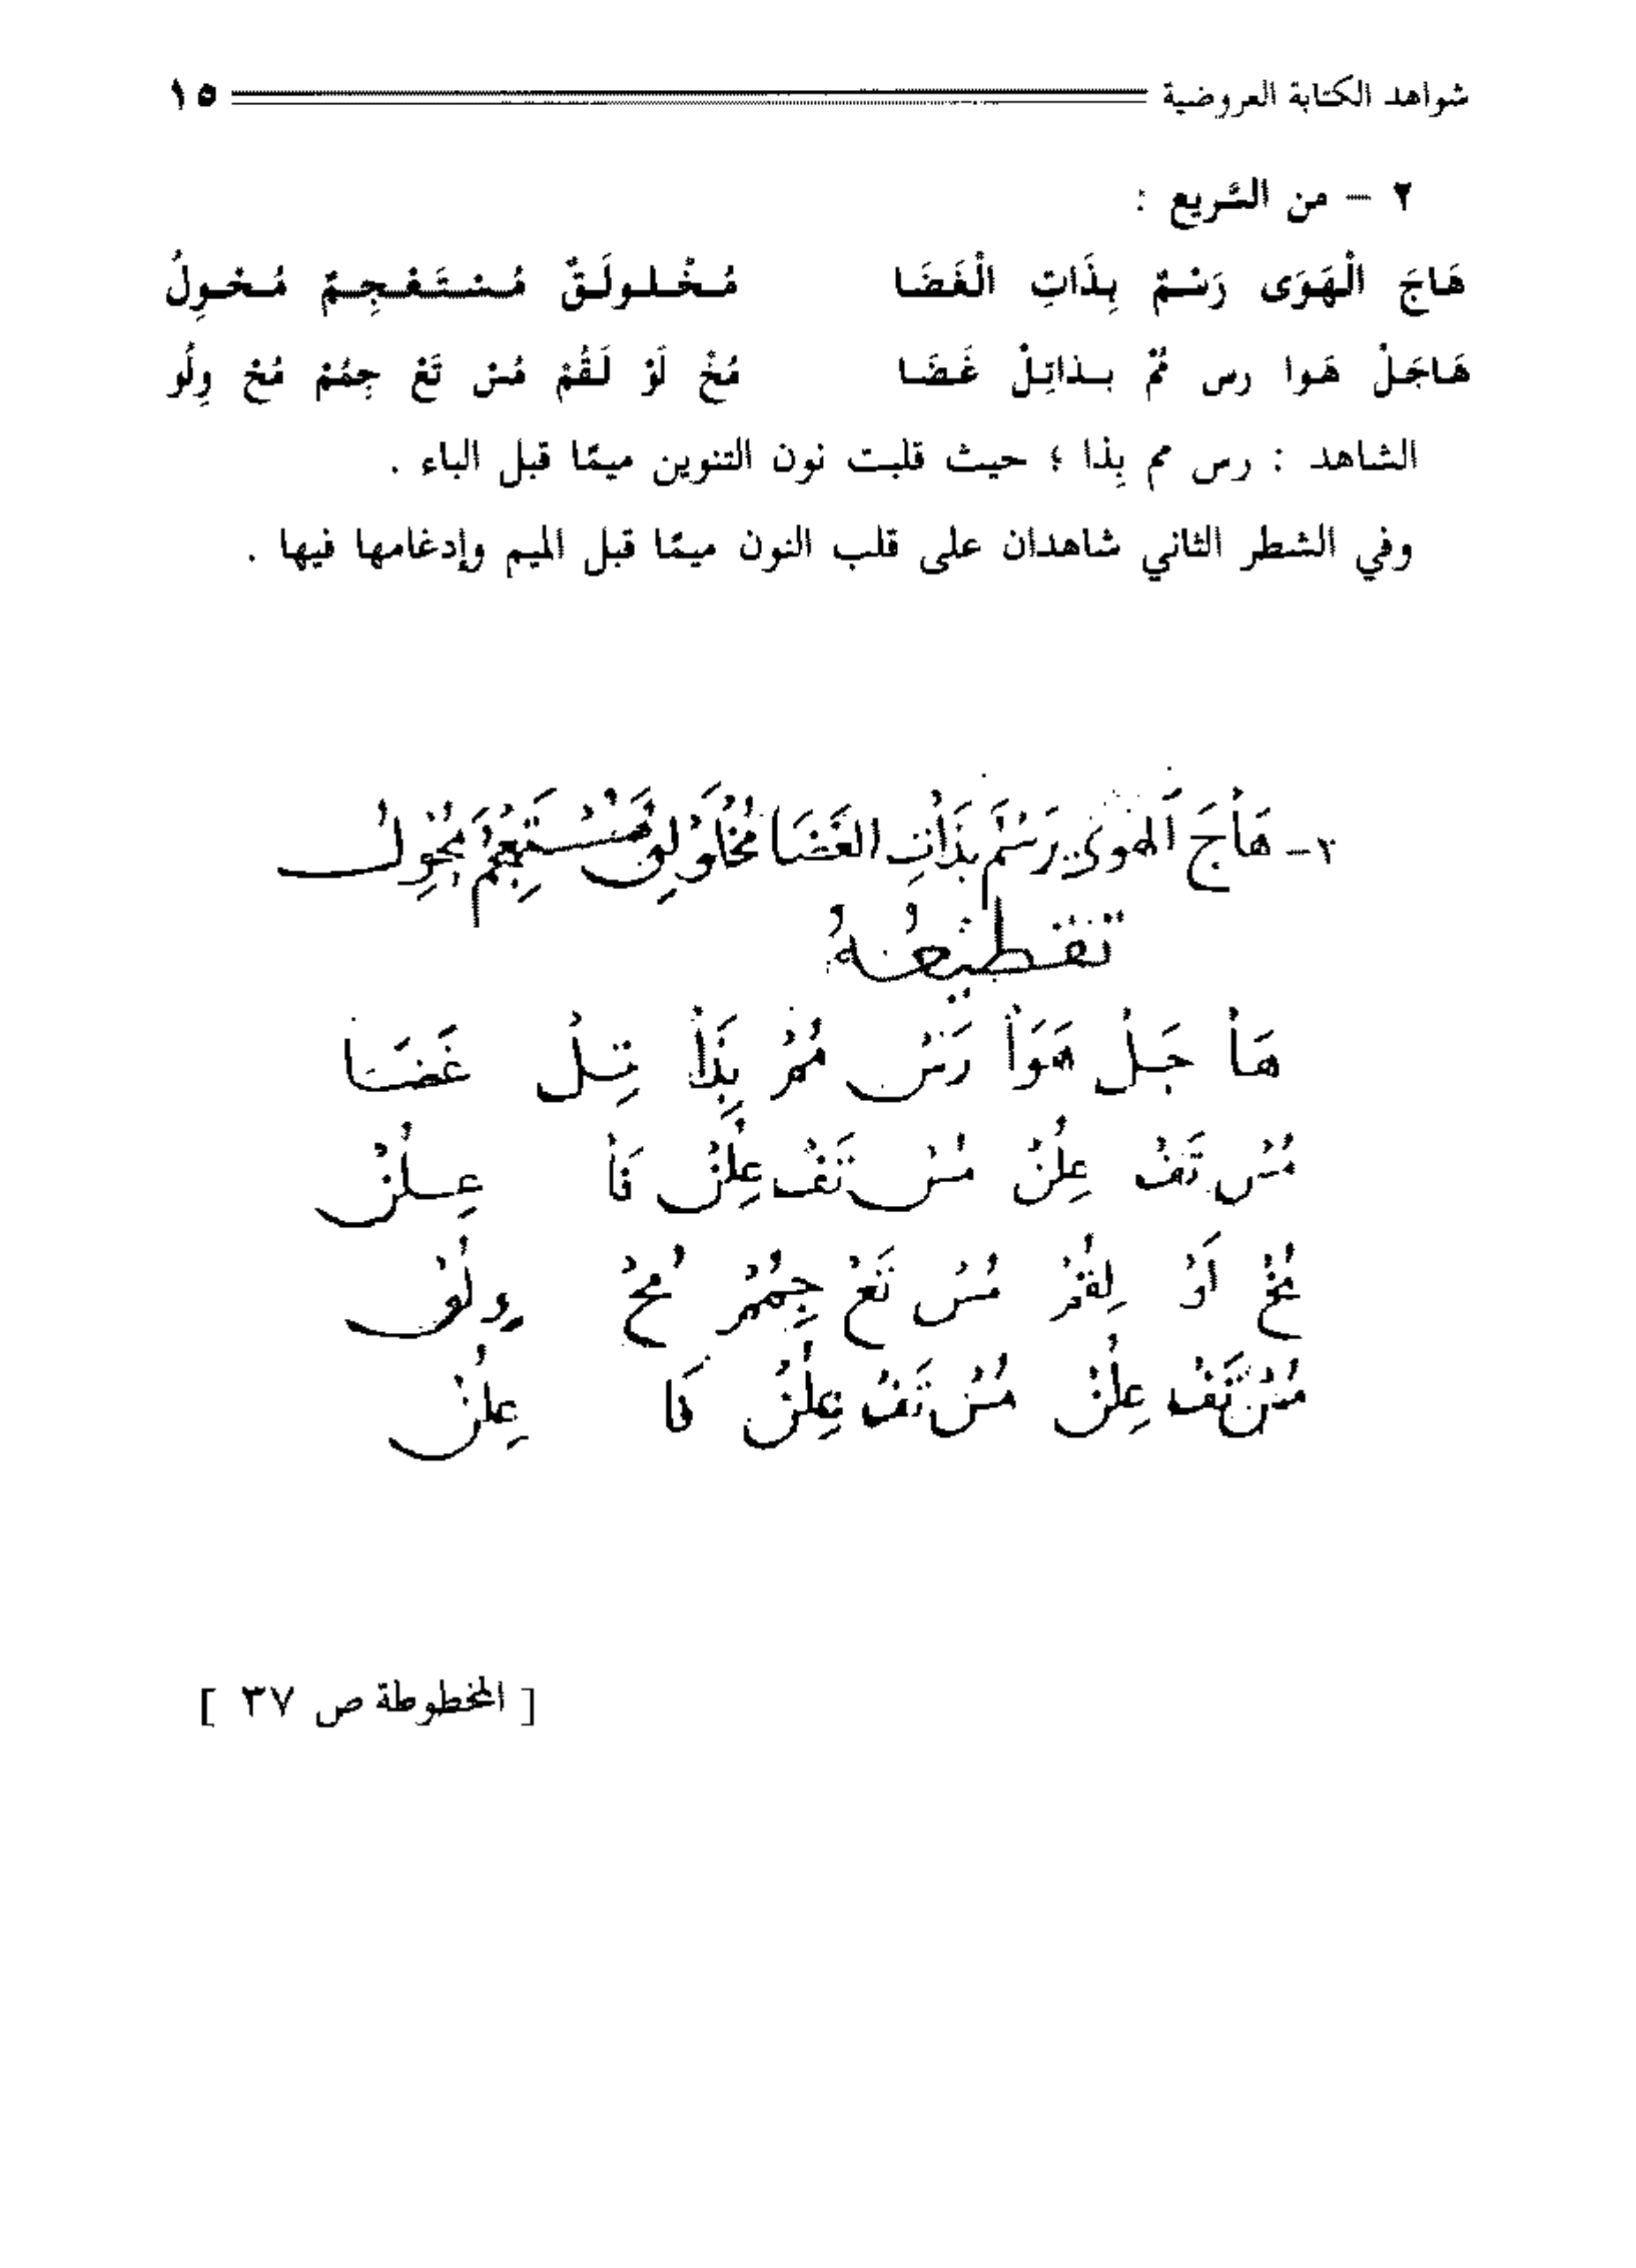 شواهد الكتابة العروضية ١٥
٢ - من السَّريع :
هَاجَ الْهَوَى رَسْمٌ بِذَاتِ الْغَضَا مُخْلولَقٌ مُسْتَعْجِمٌ مُحْوِلُ
هَاجَلْ هَوا رس مُمْ بـذاتِلْ غَضَا مُخْ لَوْ لَقُمْ مُسْ تَعْ جِمُمْ مُحْ وِلُو
الشاهد : رس مم بِذا ؛ حيث قلبت نون التنوين ميمًا قبل الباء .
وفي الشطر الثاني شاهدان على قلب النون ميمًا قبل الميم وإدغامها فيها .
٢- هَاْجَ اَلهَوىْ رَسْمٌ بِذَاْتِ الغَضَا مُخْلَوْلِقٌ مُسْتَعْجِمٌ مُحْوِلُ
تقطيعُهُ
هَاْ جَلْ هَوَاْ رَسْ مُمْ بِذَاْ تِلْ غَضَا
مُسْ تَفْ عِلُنْ مُسْ تَفْ عِلُنْ فَاْ عِلُنْ
مُخْ لَوْ لِقُمْ مُسْ تَعْ جِمُمْ مُحْ وِلُوْ
مُسْ تَفْ عِلُنْ مُسْ تَفْ عِلُنْ فَا عِلُنْ
[ المخطوطة ص ٣٧ ]